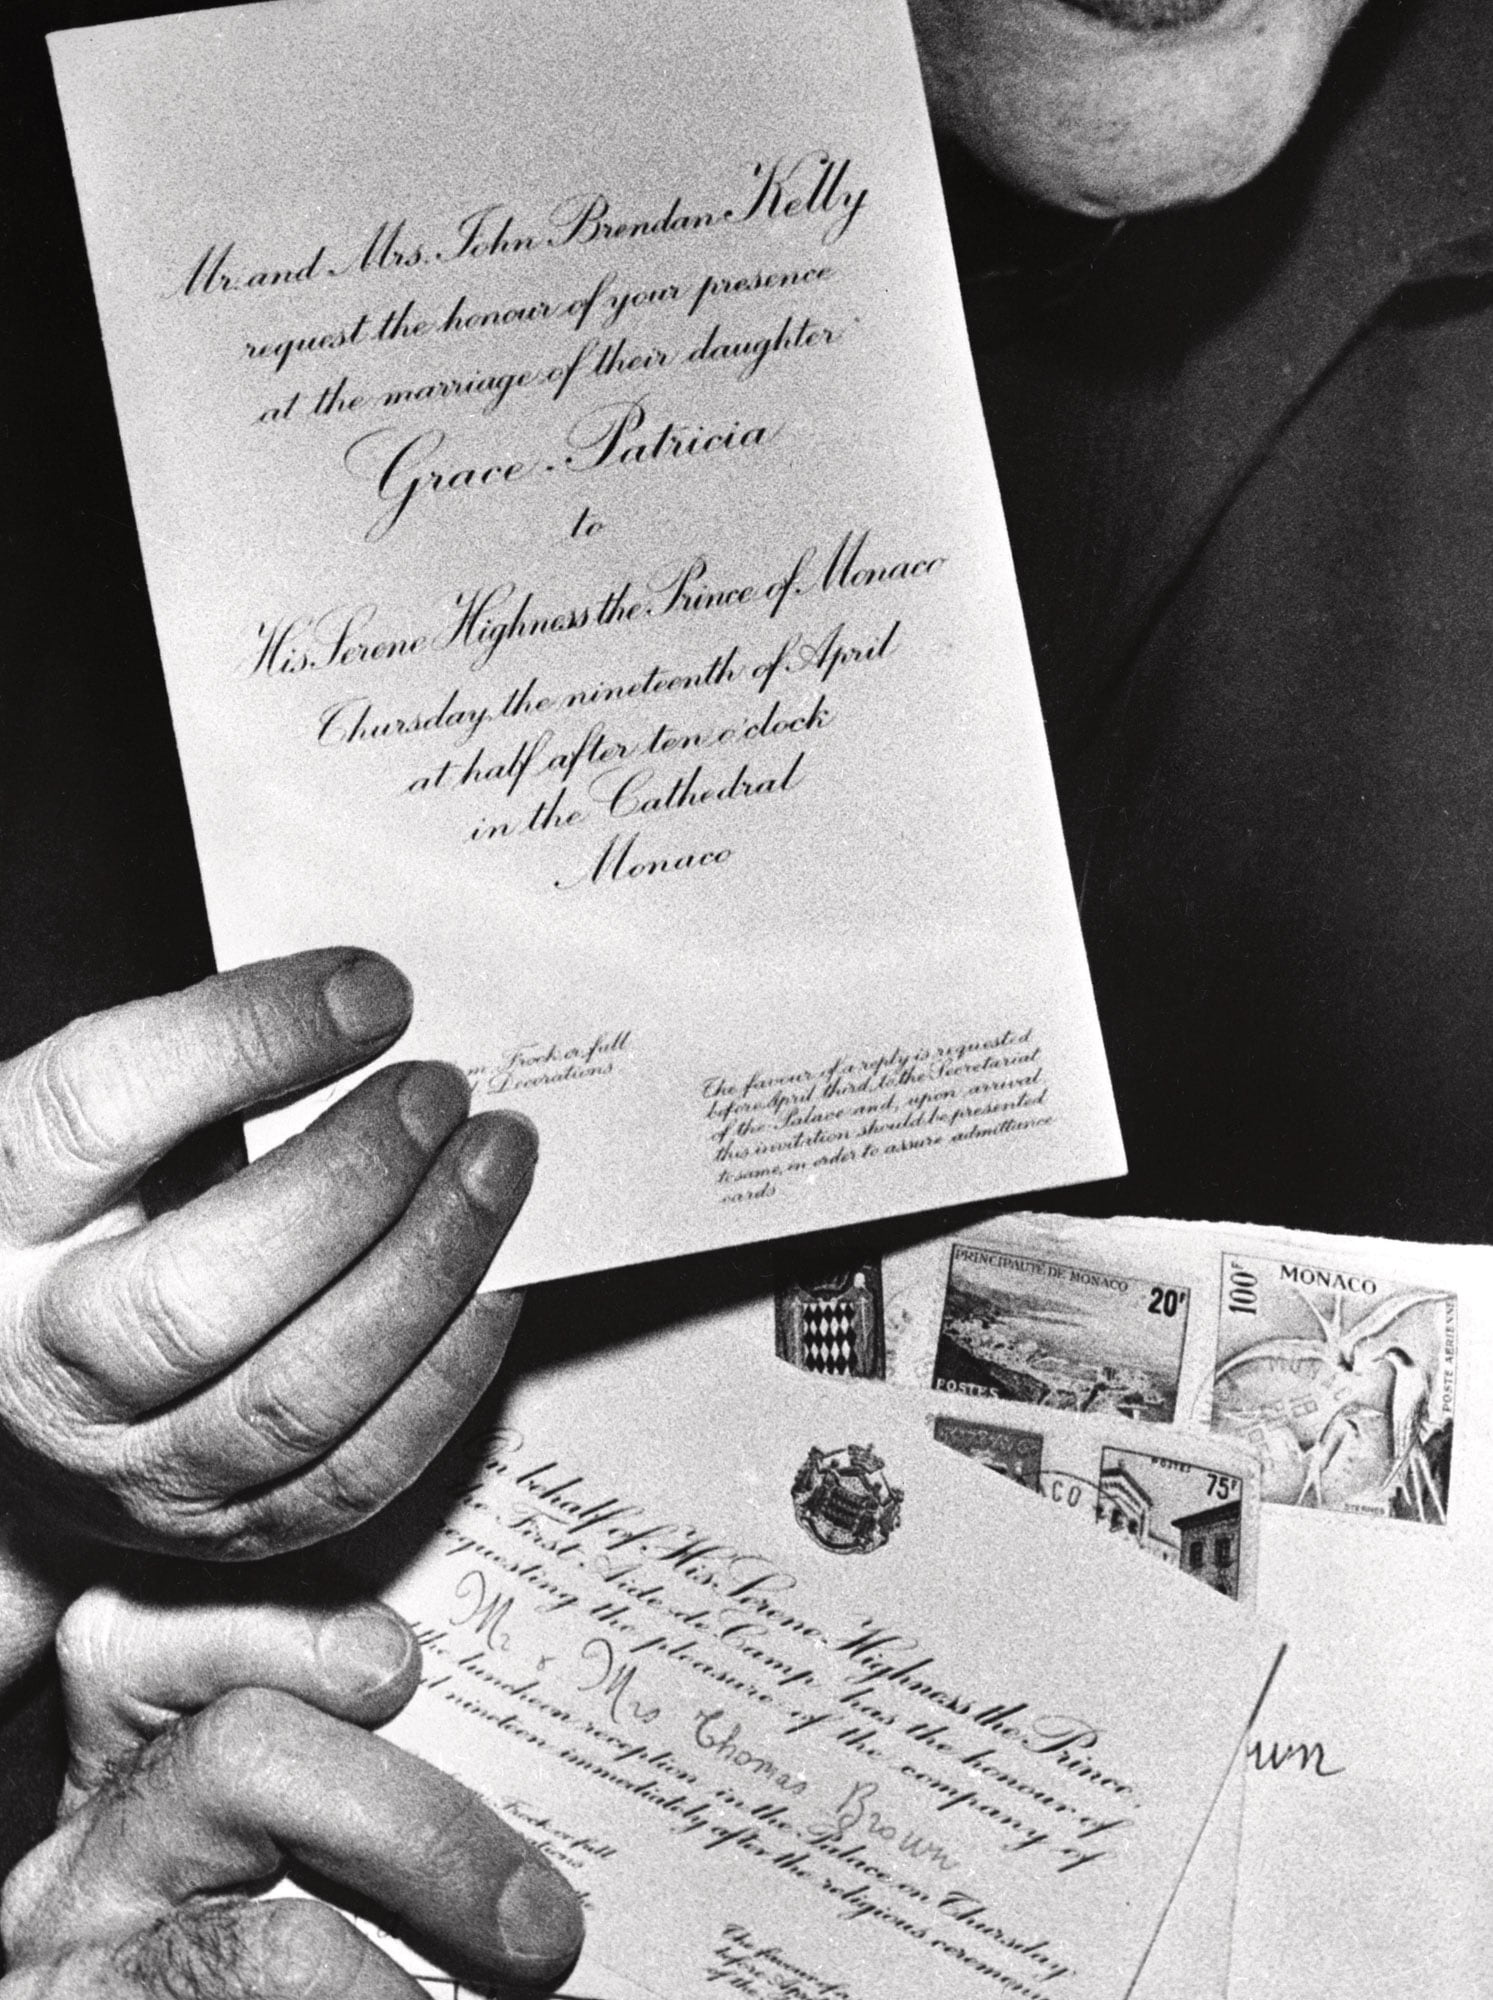 Mr. and Mrs. John Brendan Kelly
request the honour of your presence
at the marriage of their daughter
Grace Patricia
to
His Serene Highness the Prince of Monaco
Thursday, the nineteenth of April
at half after ten o'clock
in the Cathedral
Monaco
Frock or full
Decorations.
The favour of a reply is requested
before April third, to the Secretariat
of the Palace and, upon arrival
this invitation should be presented
to same, in order to assure admittance
cards
PRINCIPAUTÉ DE MONACO
20F
POSTES
100F
MONACO
POSTE AERIENNE
STERNES
POSTES
75F
CO
On behalf of His Serene Highness the Prince,
the First Aide de Camp has the honour of
requesting the pleasure of the company of
Mr & Mrs Thomas Brown
the luncheon reception in the Palace on Thursday
nineteen immediately after the religious
Frock or full
The favour of a
before April
of the
wn